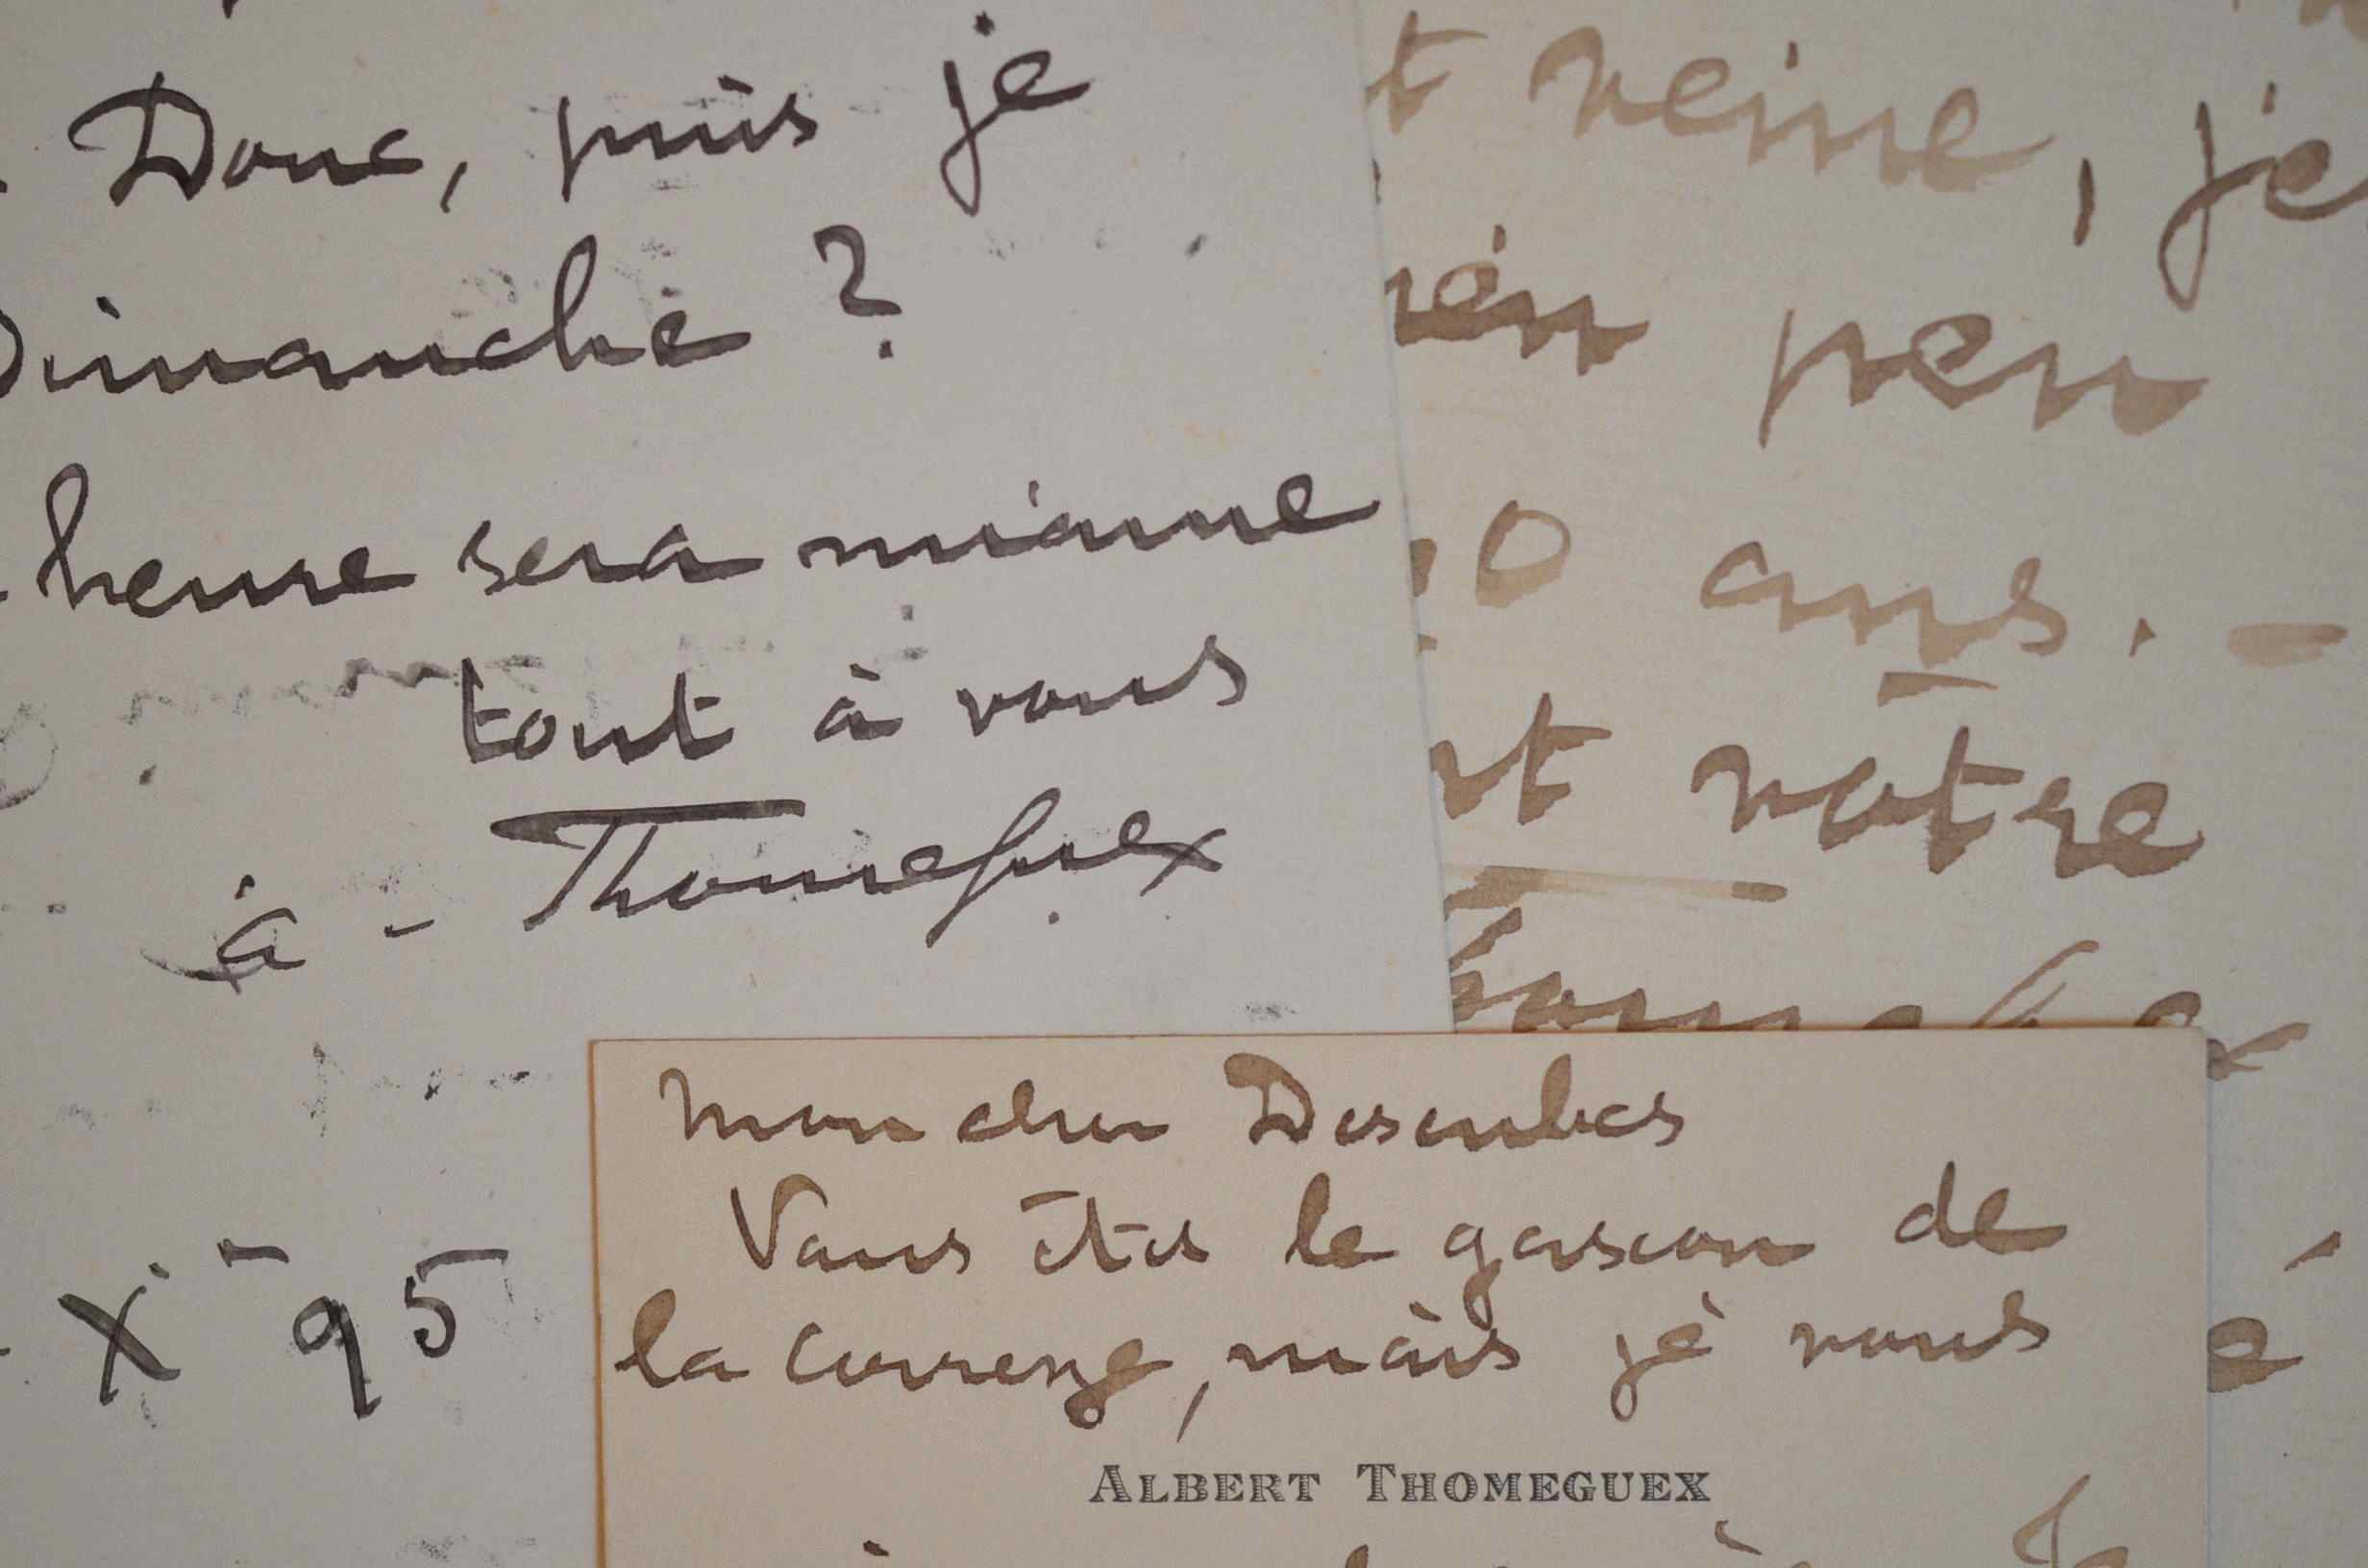 Donc, puis je
Dimanche ?
heure sera mienne
tout à vous
à - Thomeguex
X 95
t reine, je
peu
0 ans. -
notre
Mon cher Desenbes
Vous êtes le gascon de
la Correze, mais je vous
ALBERT THOMEGUEX